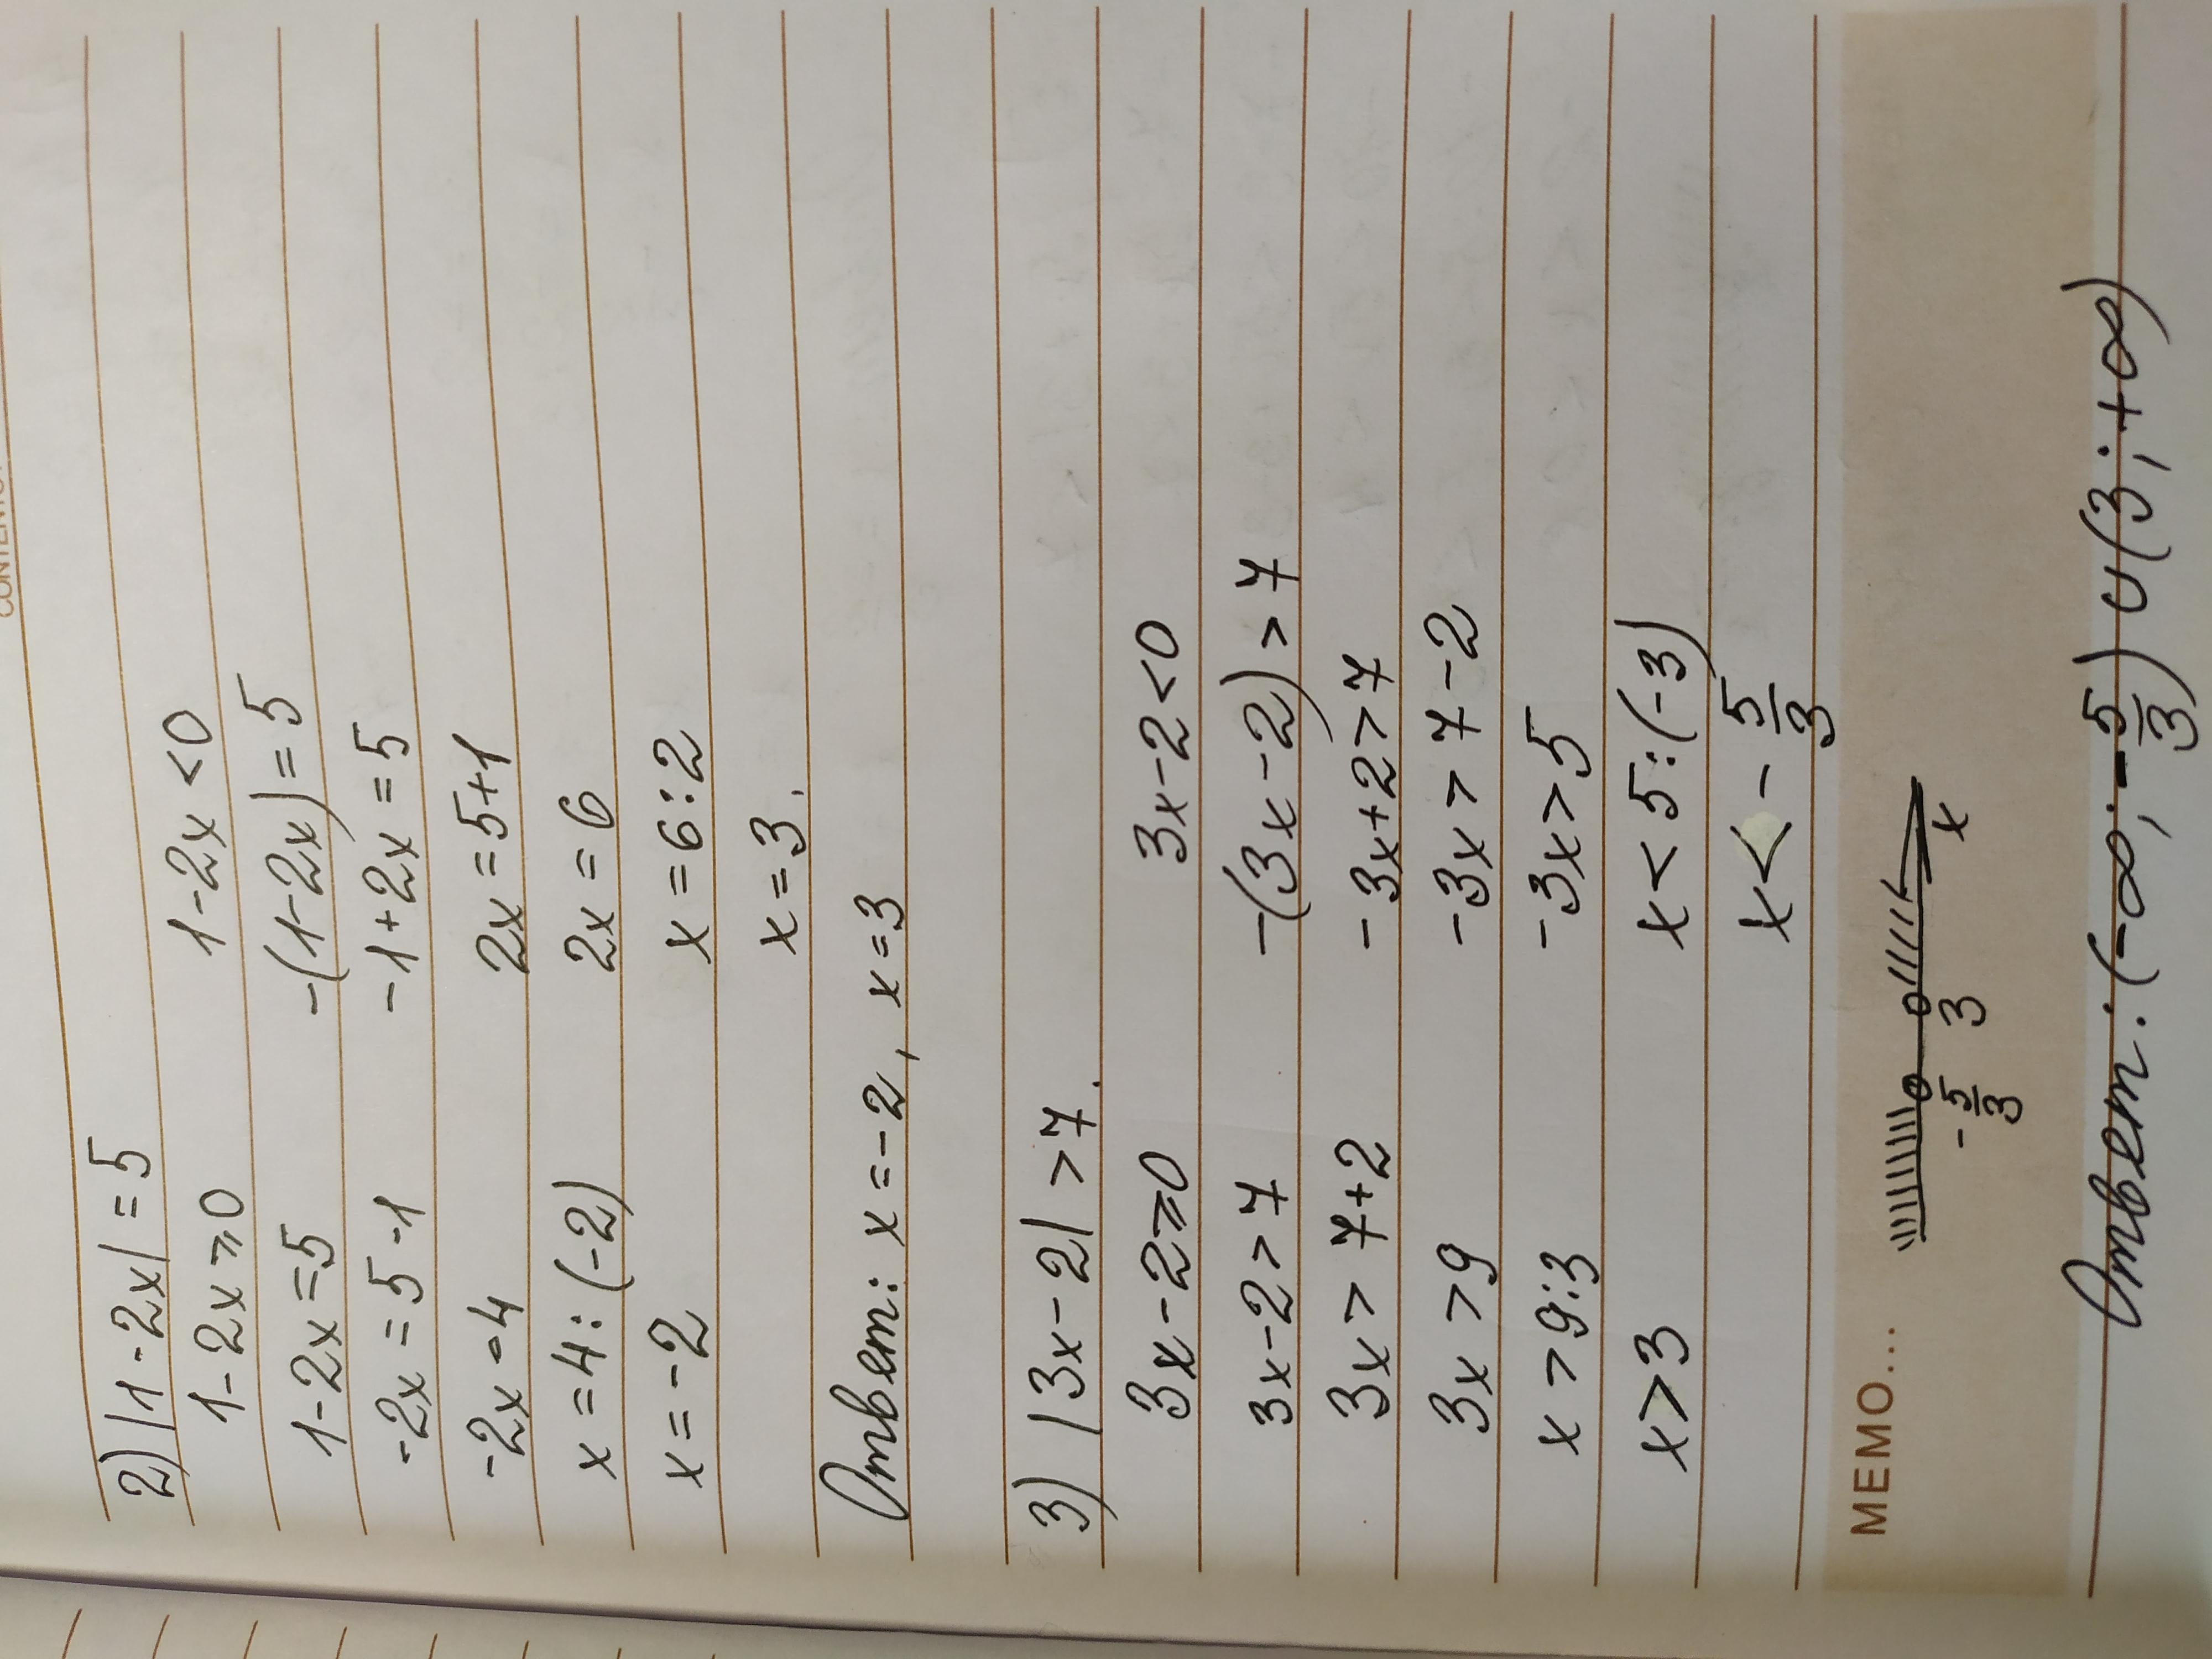 2) |1-2x| = 5
1-2x ⩾ 0 1-2x < 0
1-2x = 5 -(1-2x) = 5
-2x = 5-1 -1+2x = 5
-2x = 4 2x = 5+1
x = 4 : (-2) 2x = 6
x = -2 x = 6 : 2
x = 3.
Ответ: x = -2, x = 3
3) |3x-2| > 7.
3x-2 ⩾ 0 3x-2 < 0
3x-2 > 7 -(3x-2) > 7
3x > 7+2 -3x+2 > 7
3x > 9 -3x > 7-2
x > 9:3 -3x > 5
x > 3 x < 5 : (-3)
x < -5/3
MEMO...
-5/3 3 x
Ответ: (-∞; -5/3) ∪ (3; +∞)